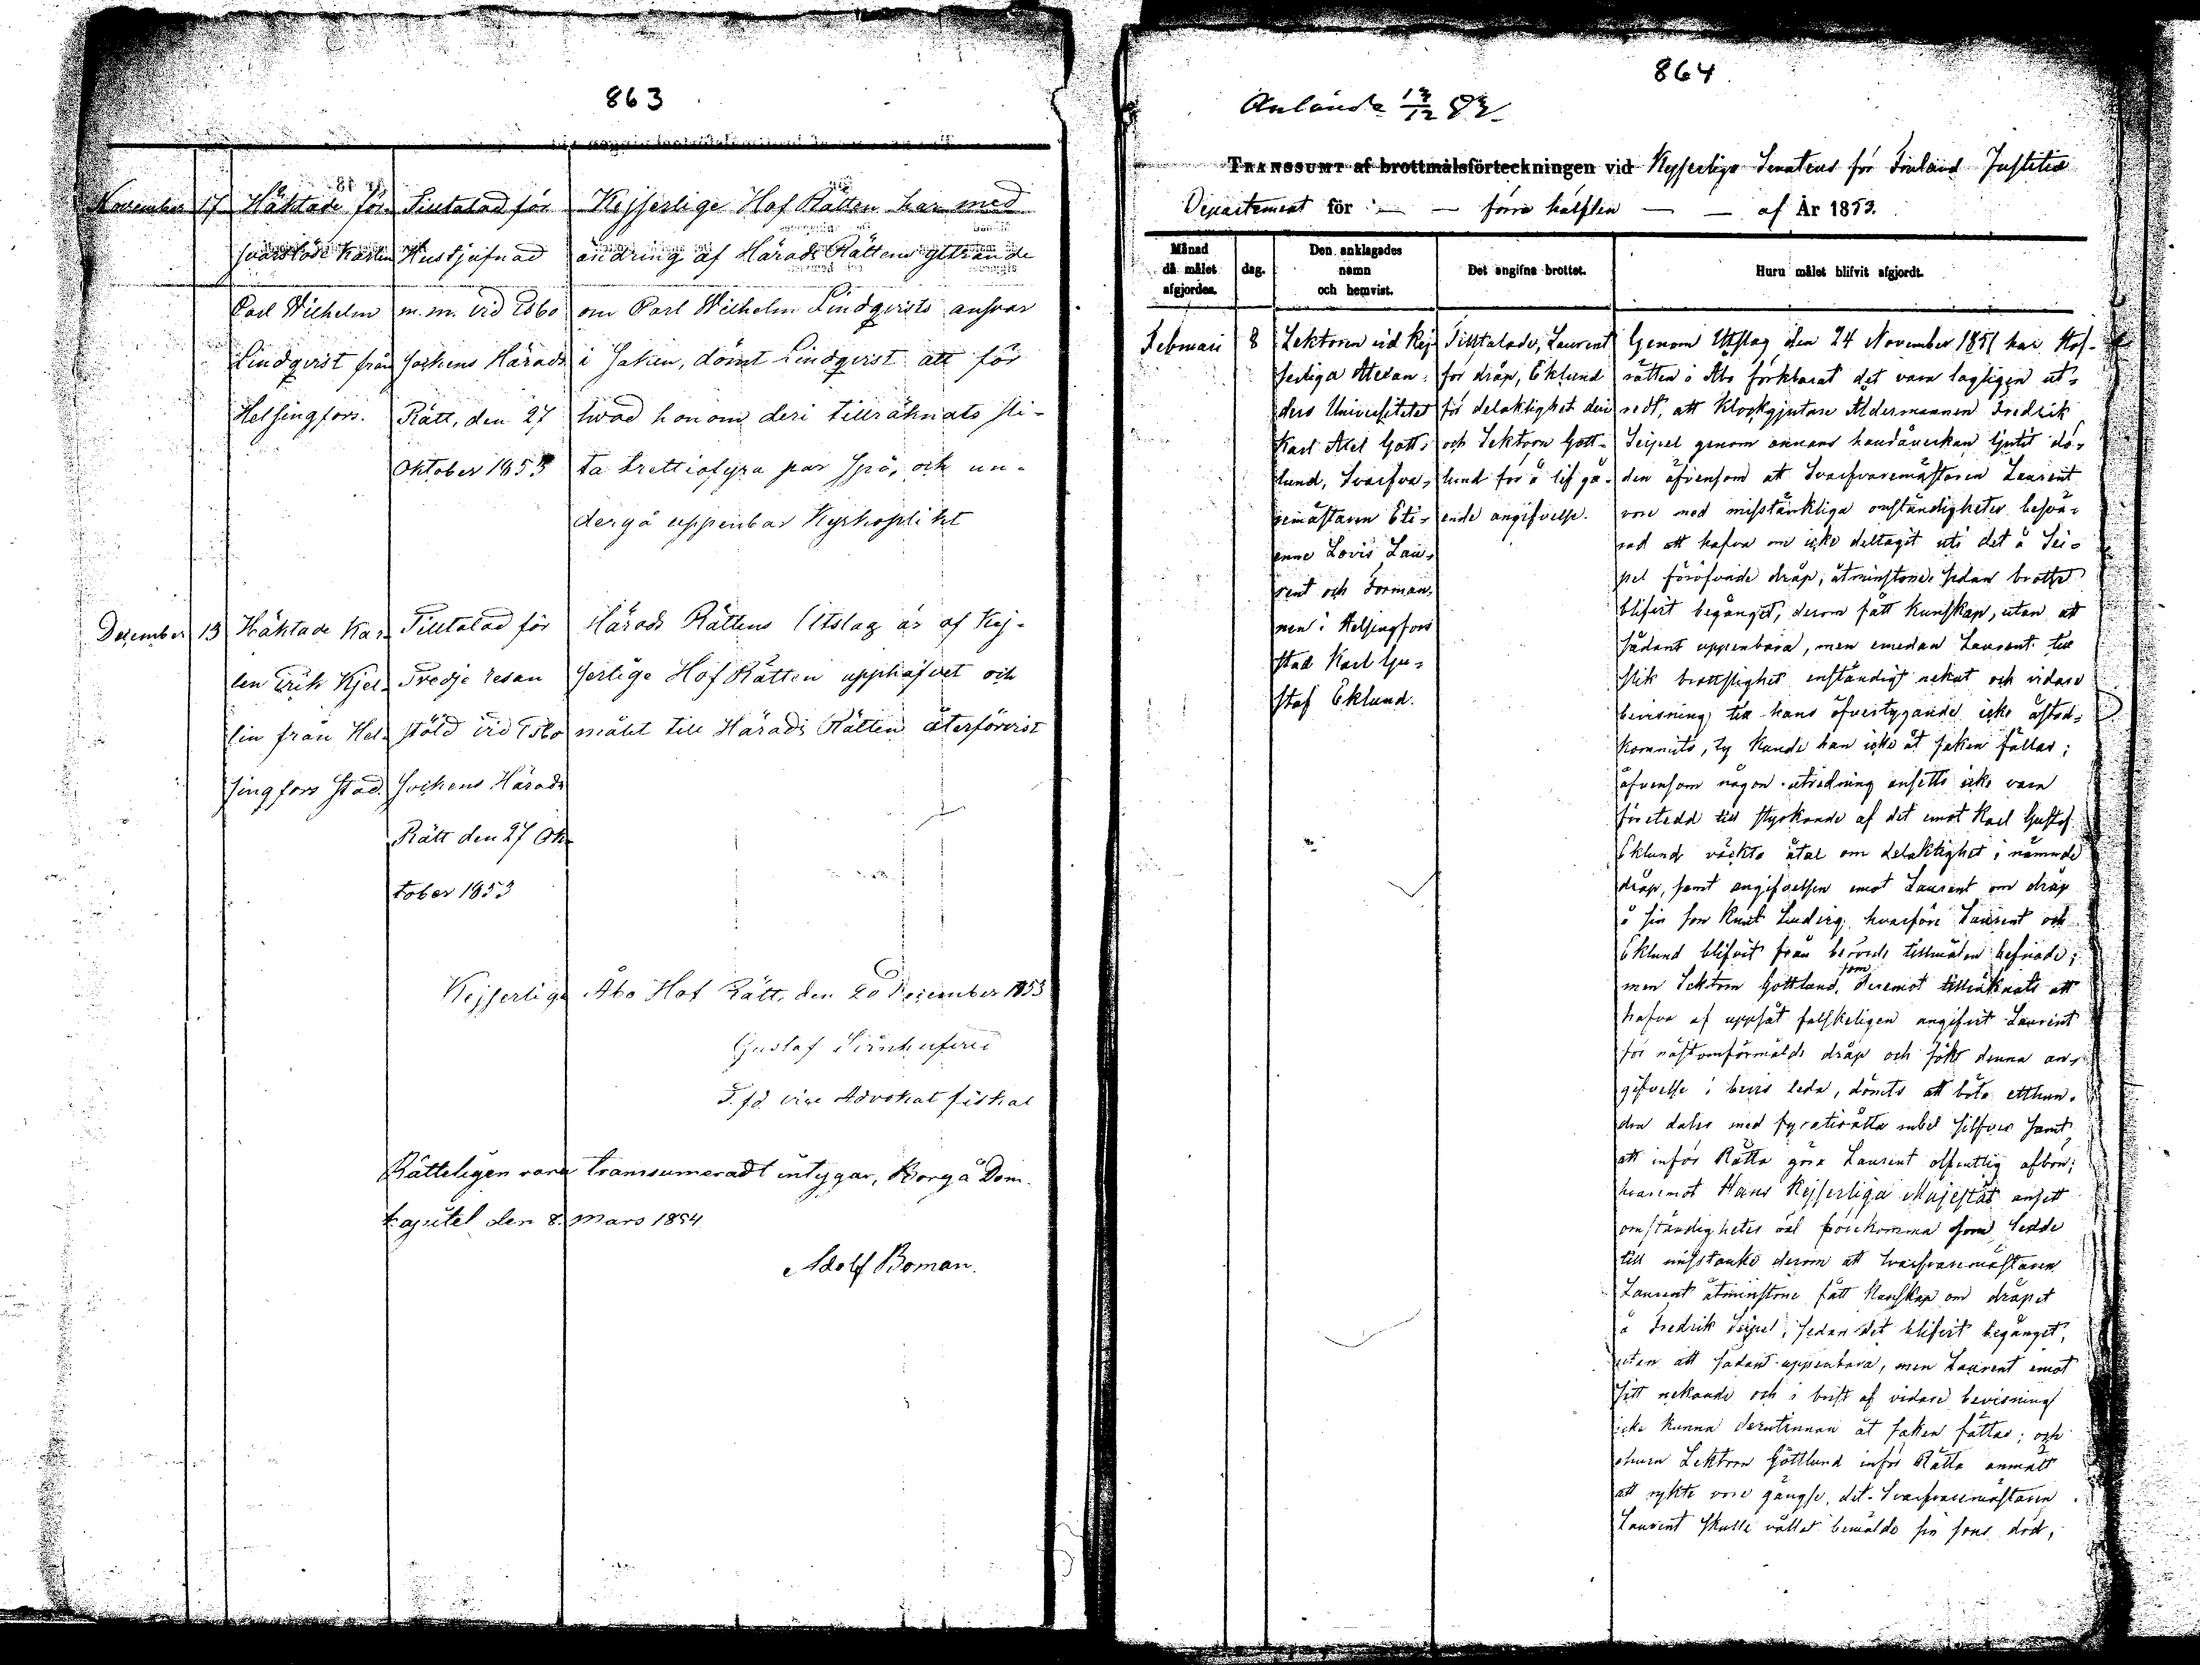 863
November 17 Häktade för- Tilltalad för Kejserliga Hof Rätten har med
svarslöse Karlen Hustjufnad ändring af Härads Rättens yttrande
Carl Wilhelm m. m. vid Esbo om Carl Wilhelm Lindqvists ansvar
Lindqvist från sockens Härads i saken, dömt Lindqvist att för
Helsingfors. Rätt, den 27 hvad honom deri tillräknats sli-
Oktober 1853 ta trettiofyra par spö, och un-
dergå uppenbar Kyrkoplikt
December 13 Häktade Kar- Tilltalad för Härads Rättens Utslag är af Kej-
len Erik Kjel- Tredje resan serliga Hof Rätten upphäfvet och
lin från Hel- stöld vid Esbo målet till Härads Rätten återförvist
singfors stad. sockens Härads
Rätt den 27 Ok-
tober 1853
Kejserliga Åbo Hof Rätt, den 20 December 1853
Gustaf
T. fd. vice Advokat fiskal
Rätteligen vara transumeradt intygar, Borgå Dom-
kapitel den 8 Mars 1854
Adolf Boman.
864
Anlände 13/12 53
TRANSSUMT af brottmålsförteckningen vid Kejserliga Senatens för Finland Justitie
Departement för — — förra hälften — — af År 1853.
Månad då målet afgjordes. dag. Den anklagades namn och hemvist. Det angifna brottet. Huru målet blifvit afgjordt.
Februari 8 Lektoren vid Kej- Tilltalade, Laurent Genom Utslag den 24 November 1851 har Hof-
serliga Alexan- för dråp, Eklund rätten i Åbo förklarat det vara lagligen ut-
ders Universitetet för delaktighet deri redt, att Klockgjutare Åldermannen Fredrik
Karl Axel Gott- och Lektorn Gott- Seipel genom annans handåverkan ljutit dö-
lund, Svarfva- lund för å lif gå- den äfvensom att Svarfvaremästaren Laurent
remästaren Eti- ende angifvelse. vore med misstänkliga omständigheter besvä-
enne Lovis Lau- rad att hafva om icke deltagit uti det å Sei-
rent och Forman- pel föröfvade dråp, åtminstone sedan brottet
nen i Helsingfors blifvit begånget, derom fått kunskap, utan att
stad Karl Gu- sådant uppenbara, men emedan Laurent till
staf Eklund. slik brottslighet enständigt nekat och vidare
bevisning till hans öfvertygande icke åstad-
kommits, ty kunde han icke åt saken fällas;
äfvensom någon utredning ansetts icke vara
företedd till styrkande af det emot Karl Gustaf
Eklund väckta åtal om delaktighet i nämnde
dråp, samt angifvelsen emot Laurent om dråp
å sin son Knut Ludvig, hvarföre Laurent och
Eklund blifvit från berörde tillmälen befriade;
men Lektorn Gottlund, som deremot tillräknats att
hafva af uppsåt falskeligen angifvit Laurent
för nästomförmälde dråp och sökt denna an-
gifvelse i bevis leda, dömts att böta etthun-
dra daler med fyratioåtta rubel silfver samt
att inför Rätta göra Laurent offentlig afbön;
hvaremot Hans Kejserliga Majestät ansett
omständigheter väl förekomma som ledde
till misstanke derom att svarfvaremästaren
Laurent åtminstone fått kunskap om dråpet
å Fredrik Seipel, sedan det blifvit begånget,
utan att sådant uppenbara, men Laurent emot
sitt nekande och i brist af vidare bevisning
icke kunna derutinnan åt saken fällas; och
ehuru Lektorn Gottlund inför Rätta anmält
att rykte vore gängse, det Svarfvaremästaren
Laurent skulle vållat bemälde sin sons död,